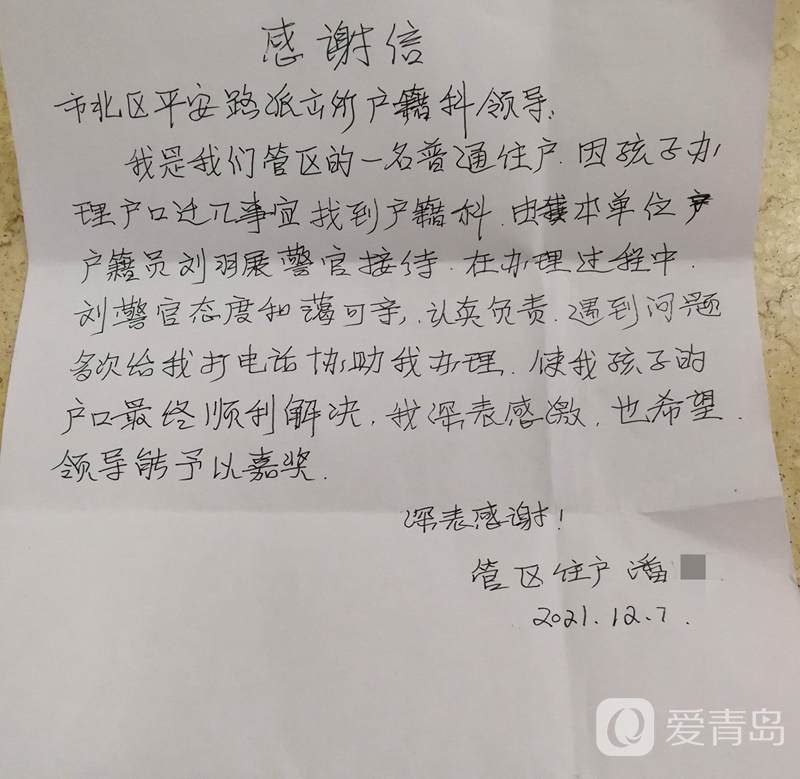 感谢信
市北区平安路派出所户籍科领导:
我是我们管区的一名普通住户.因孩子办
理户口迁入事宜找到户籍科.由本单位
户籍员刘羽展警官接待.在办理过程中.
刘警官态度和蔼可亲,认真负责.遇到问题
多次给我打电话协助我办理.使我孩子的
户口最终顺利解决.我深表感激.也希望.
领导能予以嘉奖.
深表感谢!
管区住户 潘
2021.12.7.
爱青岛